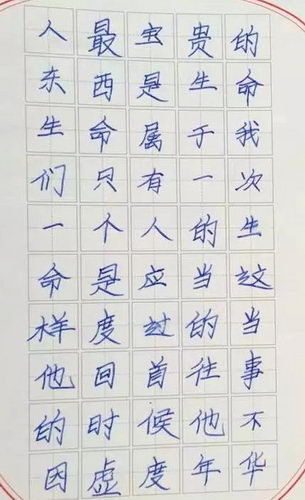 人最宝贵的
东西是生命
生命属于我
们只有一次
一个人的生
命是应当这
样度过的当
他回首往事
的时候他不
因虚度年华